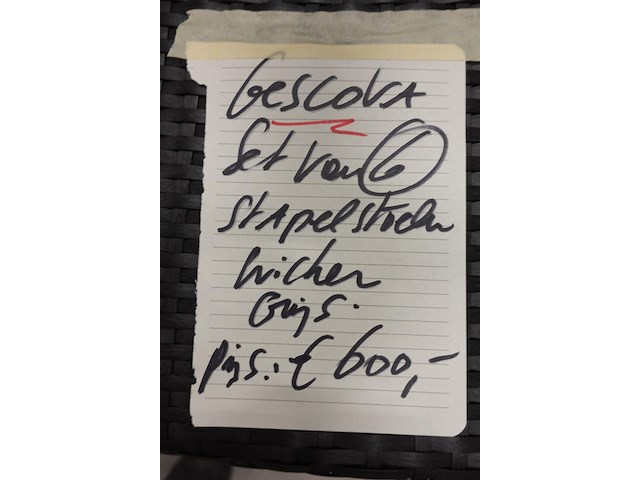 GESCOVA
Set van 6
Stapelstoelen
Wicker
Grijs.
prijs.: € 600,-